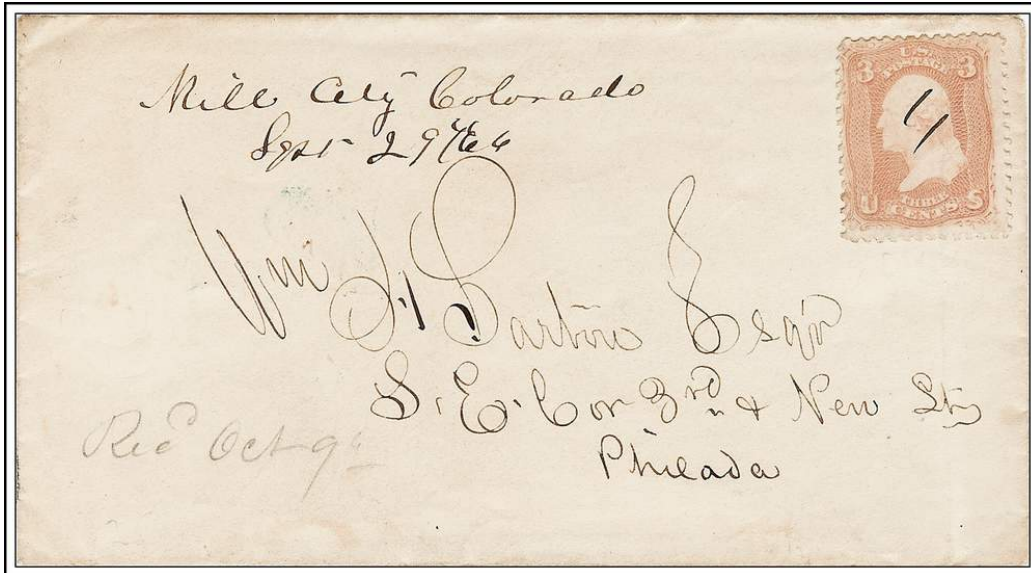 Mill City Colorado
Sept 29th/66
U.S.
POSTAGE
3 3
U CENTS S
Wm H Sartori Esqr
S. E. Cor 3rd & New Sts
Philada
Recd Oct 9th